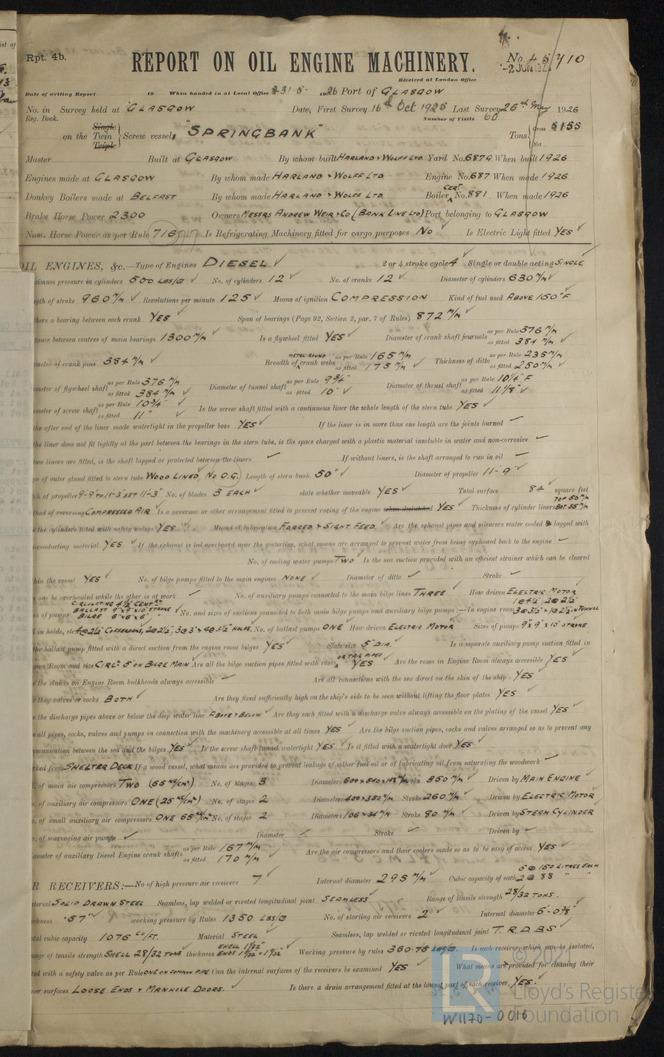 Rpt. 4b.
REPORT ON OIL ENGINE MACHINERY.
No. 45710
-2 JUN 1926
Received at London Office
Date of writing Report 19 When handed in at Local Office 31·5· 1926 Port of GLASGOW
No. in Survey held at GLASGOW Date, First Survey 16th Oct 1925 Last Survey 26th May 1926
Reg. Book. Number of Visits 60
on the Single Twin Triple Screw vessel "SPRINGBANK" Tons Gross 5155 Net
Master Built at GLASGOW By whom built HARLAND & WOLFF LTD Yard No. 687G When built 1926
Engines made at GLASGOW By whom made HARLAND & WOLFF LTD Engine No. 687 When made 1926
Donkey Boilers made at BELFAST By whom made HARLAND & WOLFF LTD Boiler CERT No. 881 When made 1926
Brake Horse Power 2300 Owners MESSRS ANDREW WEIR & CO (BANK LINE LTD) Port belonging to GLASGOW
Nom. Horse Power as per Rule 716 Is Refrigerating Machinery fitted for cargo purposes NO Is Electric Light fitted YES
OIL ENGINES, &c.—Type of Engines DIESEL 2 or 4 stroke cycle 4 Single or double acting SINGLE
pressure in cylinders 500 LBS/□ No. of cylinders 12 No. of cranks 12 Diameter of cylinders 630 m/m
of stroke 960 m/m Revolutions per minute 125 Means of ignition COMPRESSION Kind of fuel used ABOVE 150°F
there a bearing between each crank YES Span of bearings (Page 92, Section 2, par. 7 of Rules) 872 m/m
between centres of main bearings 1300 m/m Is a flywheel fitted YES Diameter of crank shaft journals as per Rule 376 m/m as fitted 384 m/m
of crank pins 384 m/m Breadth of crank webs as per Rule 165 m/m as fitted 175 m/m Thickness of ditto as per Rule 235 m/m as fitted 250 m/m
of flywheel shaft as per Rule 376 m/m as fitted 384 m/m Diameter of tunnel shaft as per Rule 9¾ as fitted 10" Diameter of thrust shaft as per Rule as fitted 11⅛"
of screw shaft as per Rule 10¾" as fitted 11" Is the screw shaft fitted with a continuous liner the whole length of the stern tube YES
the after end of the liner made watertight in the propeller boss YES If the liner is in more than one length are the joints burned —
the liner does not fit tightly at the part between the bearings in the stern tube, is the space charged with a plastic material insoluble in water and non-corrosive —
two liners are fitted, is the shaft lapped or protected between the liners — If without liners, is the shaft arranged to run in oil —
of outer gland fitted to stern tube WOOD LINED, NO O.G. Length of stern bush 50" Diameter of propeller 11-9"
of propeller No. of blades 3 EACH state whether moveable YES Total surface 84 square feet
of reversing COMPRESSED AIR Is a governor or other arrangement fitted to prevent racing of the engine when declutched YES Thickness of cylinder liners
the cylinders fitted with safety valves YES Means of lubrication FORCED & SIGHT FEED Are the exhaust pipes and silencers water cooled & lagged with
non-conducting material YES If the exhaust is led overboard near the waterline, what means are arranged to prevent water from being syphoned back to the engine —
No. of cooling water pumps TWO Is the sea suction provided with an efficient strainer which can be cleared
within the vessel YES No. of bilge pumps fitted to the main engines NONE Diameter of ditto — Stroke —
can be overhauled while the other is at work — No. of auxiliary pumps connected to the main bilge lines THREE How driven ELECTRIC MOTOR
of pumps BALLAST BILGE No. and sizes of suctions connected to both main bilge pumps and auxiliary bilge pumps:—In engine room
in holds, etc. No. of ballast pumps ONE How driven ELECTRIC MOTOR Sizes of pumps 9"x9"x10" STROKE
the ballast pump fitted with a direct suction from the engine room bilges YES State size 5" DIA. Is a separate auxiliary pump suction fitted in
Engine Room and size Are all the bilge suction pipes fitted with roses YES Are the roses in Engine Room always accessible YES
the sluices on Engine Room bulkheads always accessible — Are all connections with the sea direct on the skin of the ship YES
they valves or cocks BOTH Are they fixed sufficiently high on the ship's side to be seen without lifting the floor plates YES
the discharge pipes above or below the deep water line ABOVE & BELOW Are they each fitted with a discharge valve always accessible on the plating of the vessel YES
all pipes, cocks, valves and pumps in connection with the machinery accessible at all times YES Are the bilge suction pipes, cocks and valves arranged so as to prevent any
communication between the sea and the bilges YES Is the screw shaft tunnel watertight YES Is it fitted with a watertight door YES
worked from SHELTER DECK If a wood vessel, what means are provided to prevent leakage of either fuel oil or of lubricating oil from saturating the woodwork —
of main air compressors TWO No. of stages 3 Diameters Stroke 350 m/m Driven by MAIN ENGINE
of auxiliary air compressors ONE No. of stages 2 Diameters Stroke 260 m/m Driven by ELECTRIC MOTOR
of small auxiliary air compressors ONE No. of stages 2 Diameters Stroke 80 m/m Driven by STEAM CYLINDER
of scavenging air pumps — Diameter — Stroke — Driven by —
of auxiliary Diesel Engine crank shafts as per Rule 167 m/m as fitted 170 m/m Are the air compressors and their coolers made so as to be easy of access YES
AIR RECEIVERS:—No. of high pressure air receivers 7 Internal diameter 295 m/m Cubic capacity of each
SOLID DRAWN STEEL Seamless, lap welded or riveted longitudinal joint SEAMLESS Range of tensile strength 28/32 TONS.
.57" working pressure by Rules 1350 LBS/□ No. of starting air receivers 2 Internal diameter
cubic capacity 1076 CU/FT. Material STEEL Seamless, lap welded or riveted longitudinal joint T.R.D.B.S
of tensile strength SHELL 28/32 TONS thickness Working pressure by rules Is each receiver, which can be isolated,
fitted with a safety valve as per Rule ONE ON COMMON PIPE Can the internal surfaces of the receivers be examined YES What means are provided for cleaning their
inner surfaces LOOSE ENDS & MANHOLE DOORS. Is there a drain arrangement fitted at the lowest part of each receiver YES.
© 2021
Lloyd's Register
Foundation
W1170-0016